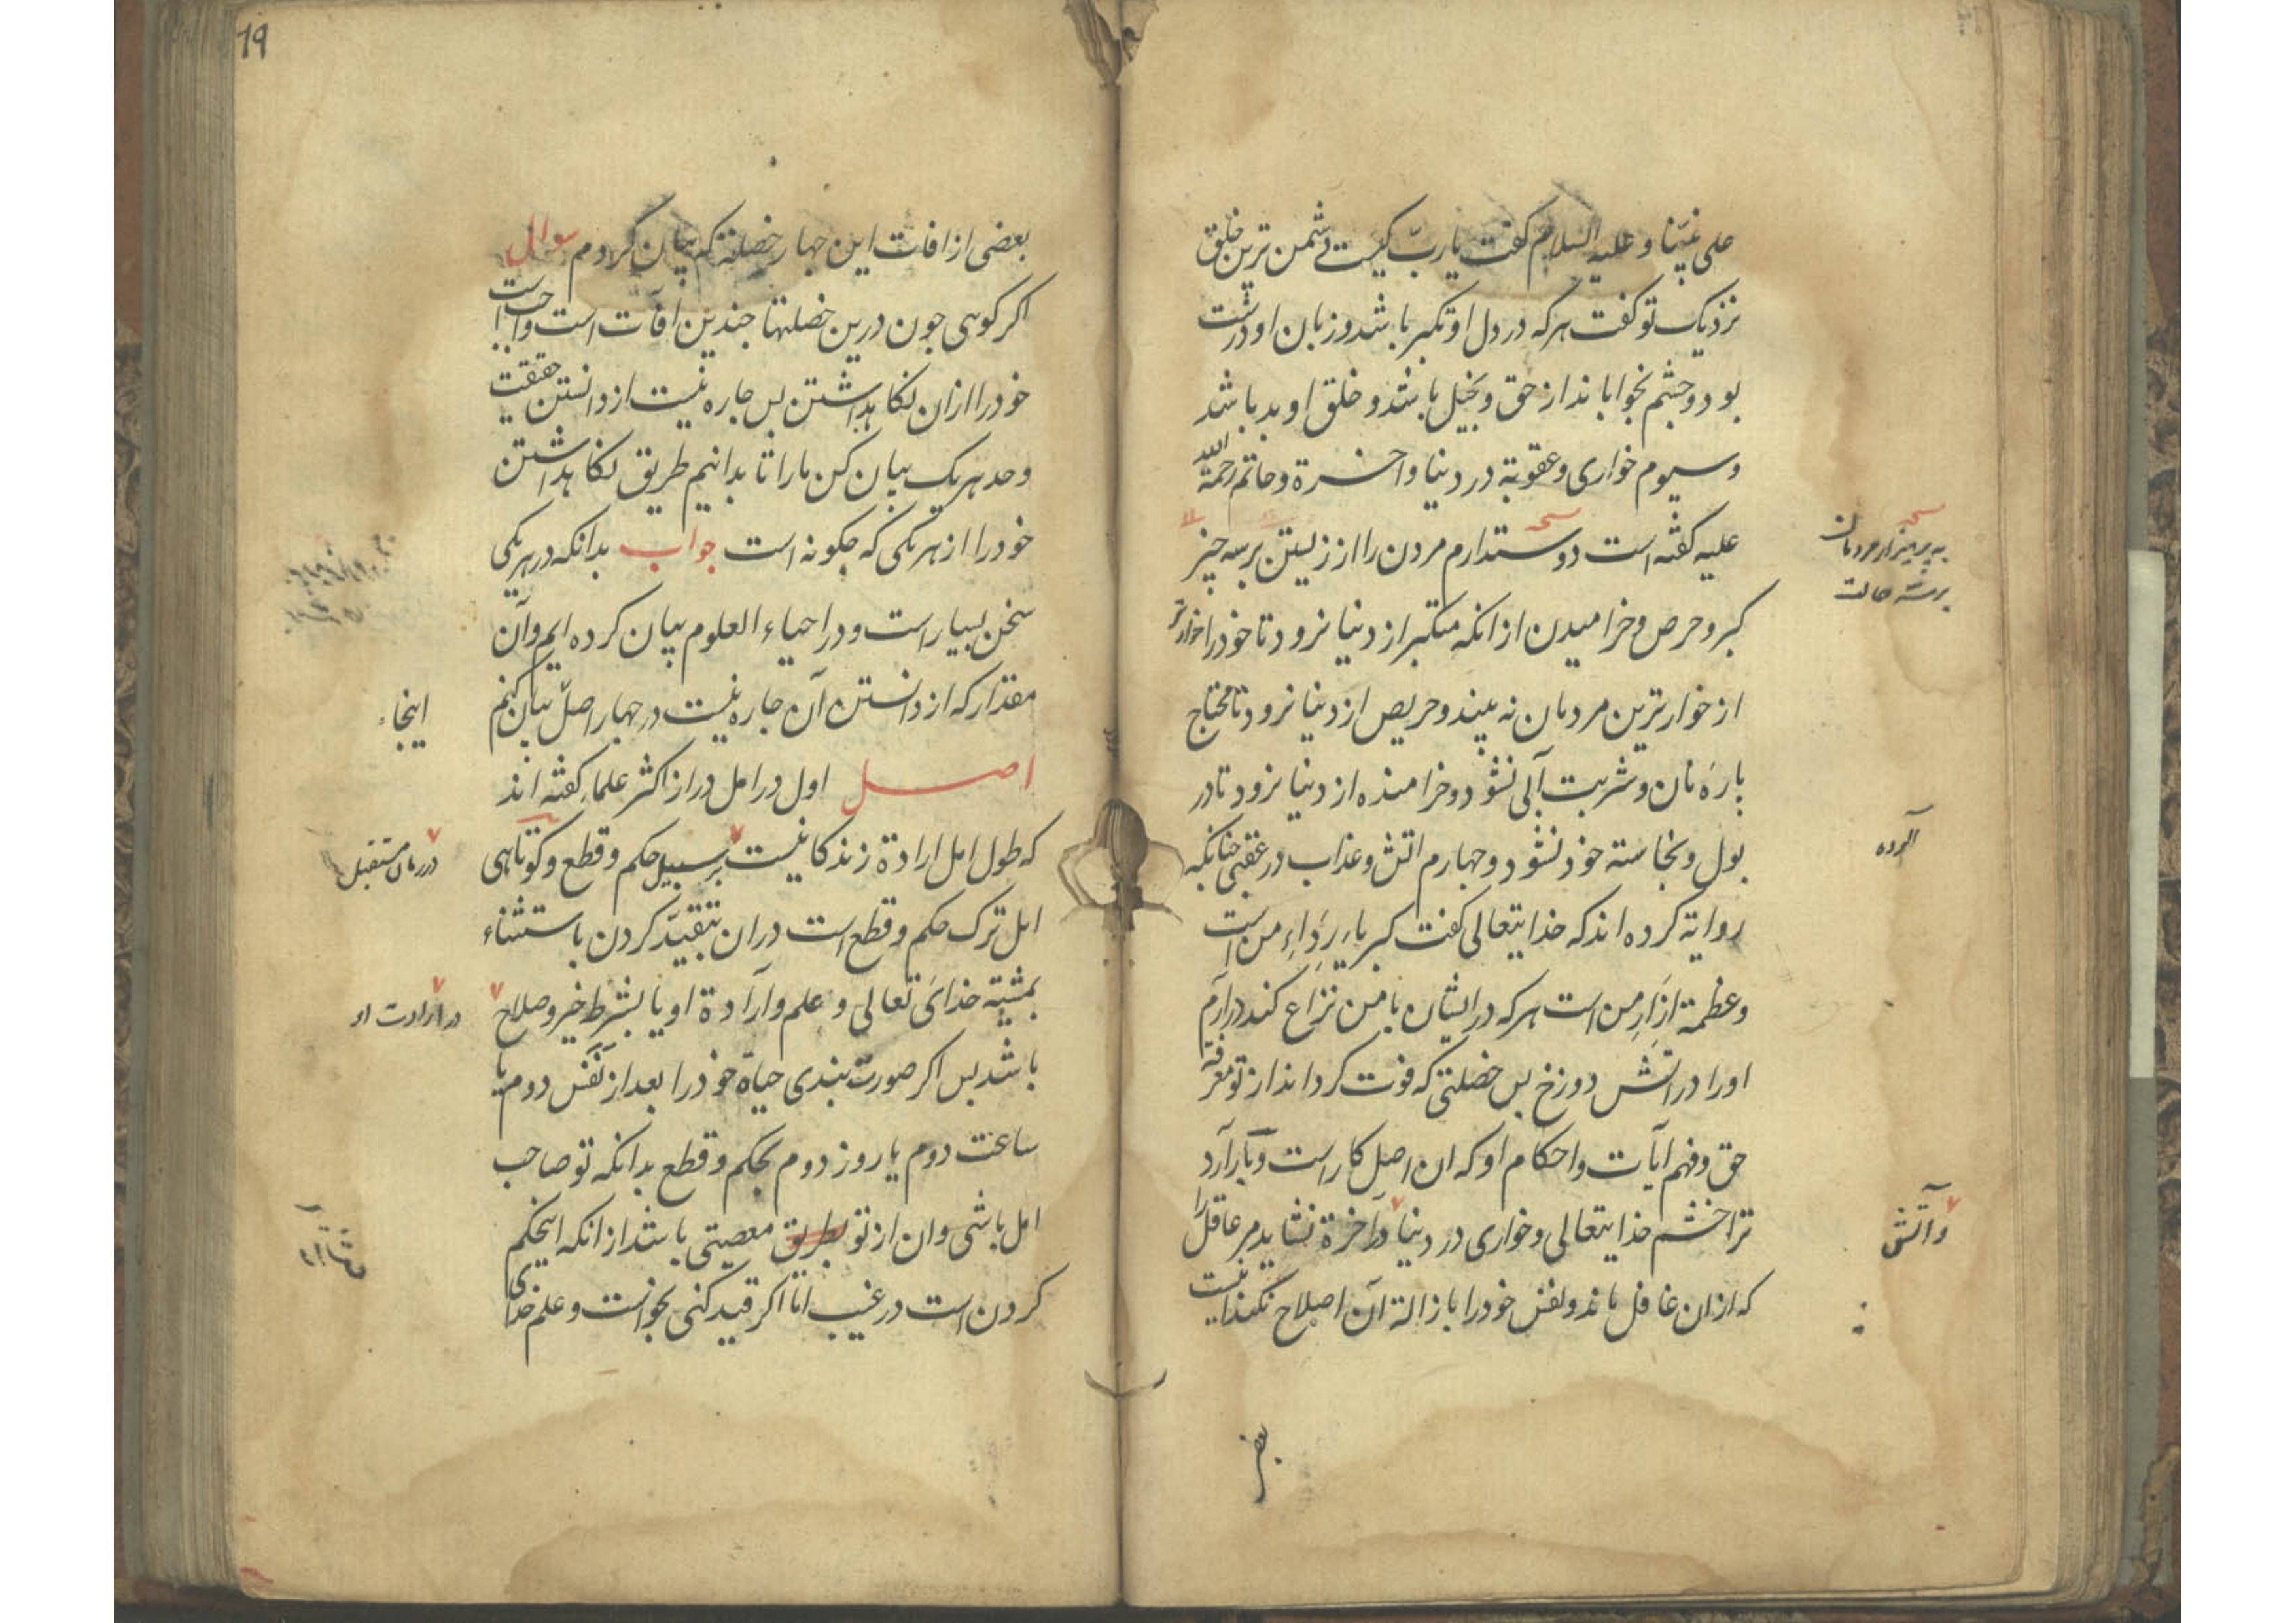 علی نبینا و علیه السلام کفت یا ربّ کیست دشمن ترین خلق
نزدیک تو کفت هرکه در دل او تکبر باشد و زبان او درشت
بود و چشم بخوابانداز حق و بخیل باشد و خلق او بد باشد
و سیوم خواری و عقوبة در دنیا و اخرة و حاتم رحمة الله
علیه کفته است دوستدارم مردن را از زیستن بر سه چیز
کبر و حرص و خرامیدن از انکه متکبر از دنیا نرود تا خود را خوارتر
از خوارترین مردمان نه بیند و حریص از دنیا نرود تا محتاج
بارهٔ نان و شربت آبی نشود و خرامنده از دنیا نرود تا در
بول و نجاسته خود نشود و جهارم اتش و عذاب در عقبی جنانکه
روایة کرده اند که خدایتعالی کفت کبریاء رِدَاءِ من است
و عظمة اِزَارِ من است هرکه در ایشان با من نزاع کند درارم
اورا در اتش دوزخ بس خصلتی که فوت کرداند از تو معرفة
حق و فهم آیات و احکام او که ان اصل کار است و بار آرد
ترا خشم خدایتعالی و خواری در دنیا در آخرة نشاید مر عاقل را
که از ان غافل ماند و نفس خود را بازالة آن اصلاح نکند اینست
به پرهیز از مردمان
برسه حالت
آلوده
و آتش
بعضی
19
بعضی از افات این جهار خصلة که بیان کردم سوال
اکر کویی جون درین خصلتها جندین افآت است و واجب است
خود را ازان نکاهداشتن بس جاره نیست از دانستن حقیقت
و حد هریک بیان کن مارا تا بدانیم طریق نکاهداشتن
خود را از هریکی که جکونه است جواب بدانکه در هریکی
سخن بسیار است و در احیاء العلوم بیان کرده ایم و آن
مقدار که از دانستن آن جاره نیست در جهار اصل بیان کنیم
اصل اول در امل دراز اکثر علماء کفته اند
که طول امل ارادة زندکانیست بر سبیل حکم و قطع و کوتاهی
امل ترک حکم و قطع است دران بتقیید کردن باستثناء
بمشیة خدای تعالی و علم وارادة او یا بشرط خیر و صلاح
باشد بس اکر صورت بندی حیاة خود را بعد از نَفَس دوم یا
ساعت دوم یا روز دوم بحکم و قطع بدانکه تو صاحب
امل باشی و ان از تو بطریق معصیتی باشد از انکه اینحکم
کردن است در غیب اما اکر قید کنی بخواست و علم خدای
اینجاء
در زمان مستقبل
در ارادت او